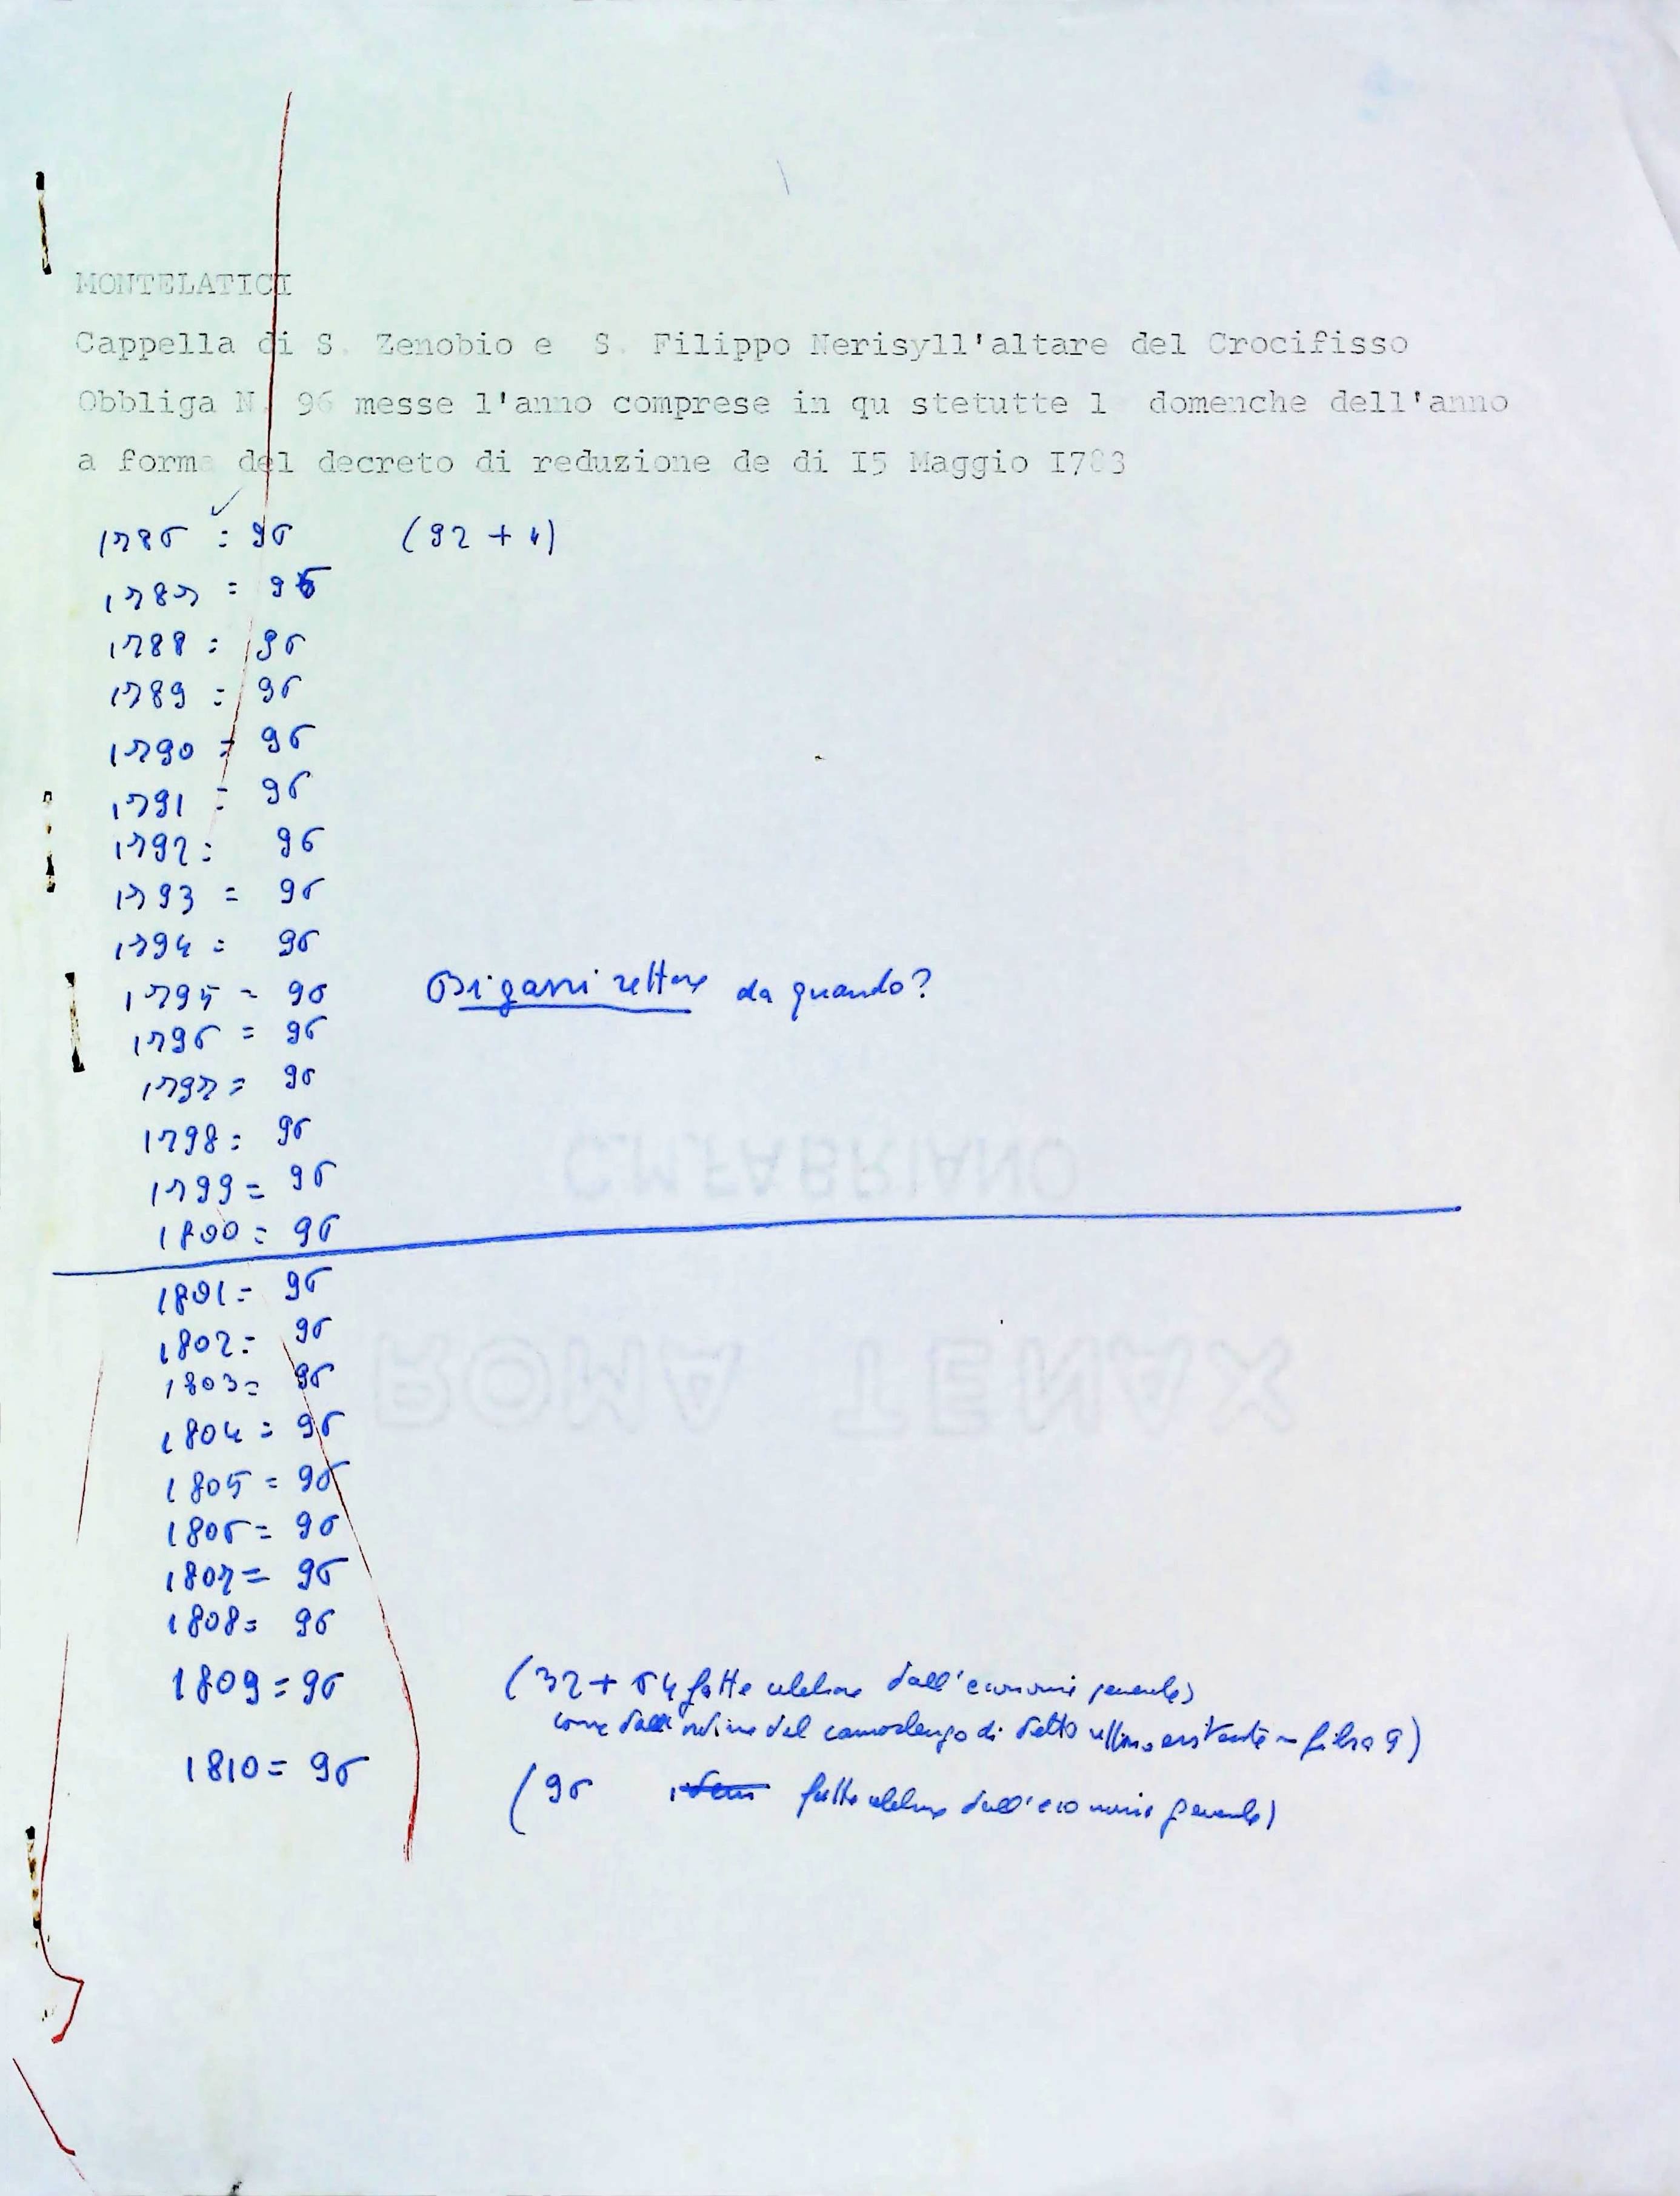 MONTELATICI
Cappella di S. Zenobio e S. Filippo Nerisyll'altare del Crocifisso
Obbliga N. 96 messe l'anno comprese in qu stetutte l domenche dell'anno
a forma del decreto di reduzione de di I5 Maggio I783
1786 : 96 (92 + 4)
1787 = 96
1788 : 96
1789 : 96
1790 = 96
1791 = 96
1792 : 96
1793 = 96
1794 = 96
1795 = 96 rettore da quando?
1796 = 96
1797 = 96
1798 = 96
1799 = 96
1800 = 96
C.M.FABRIANO
1801 = 96
1802 = 96
1803 = 96
ROMA TENAX
1804 = 96
1805 = 96
1806 = 96
1807 = 96
1808 = 96
1809 = 96 (32 + 64 fatte celebrare dall'economie generale
come dall'ordine del camarlengo di detto filza 9)
1810 = 96 (96 idem fatte celebrare dall'economie generale)